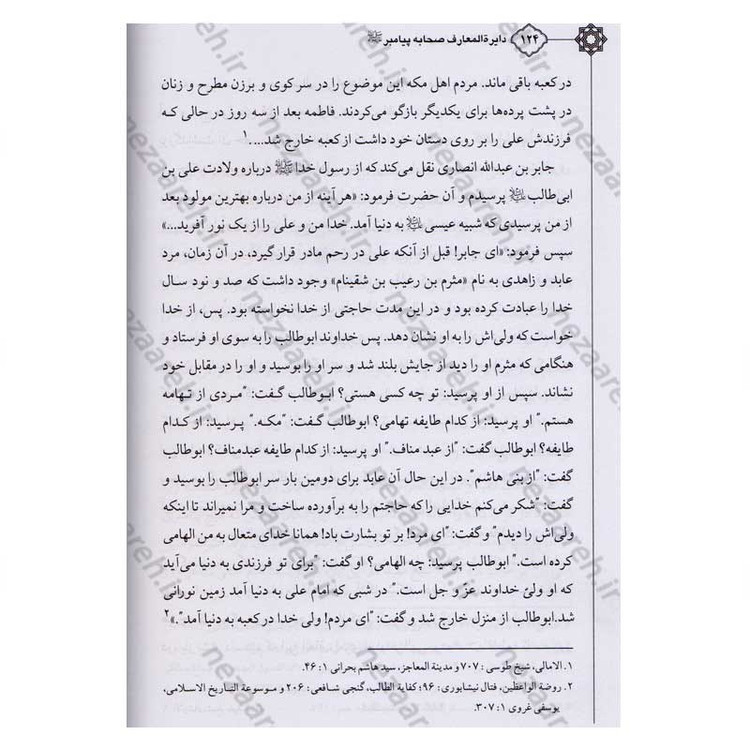 ۱۲۴ دایرةالمعارف صحابه پیامبر ﷺ
در کعبه باقی ماند. مردم اهل مکه این موضوع را در سر کوی و برزن مطرح و زنان
در پشت پرده‌ها برای یکدیگر بازگو می‌کردند. فاطمه بعد از سه روز در حالی که
فرزندش علی را بر روی دستان خود داشت از کعبه خارج شد....۱
جابر بن عبدالله انصاری نقل می‌کند که از رسول خدا ﷺ درباره ولادت علی بن
ابی‌طالب پرسیدم و آن حضرت فرمود: «هر آینه از من درباره بهترین مولود بعد
از من پرسیدی که شبیه عیسی به دنیا آمد. خدا من و علی را از یک نور آفرید...»
سپس فرمود: «ای جابر! قبل از آنکه علی در رحم مادر قرار گیرد، در آن زمان، مرد
عابد و زاهدی به نام «مثرم بن رعیب بن شقینام» وجود داشت که صد و نود سال
خدا را عبادت کرده بود و در این مدت حاجتی از خدا نخواسته بود. پس، از خدا
خواست که ولی‌اش را به او نشان دهد. پس خداوند ابوطالب را به سوی او فرستاد و
هنگامی که مثرم او را دید از جایش بلند شد و سر او را بوسید و او را در مقابل خود
نشاند. سپس از او پرسید: تو چه کسی هستی؟ ابوطالب گفت: "مردی از تهامه
هستم." او پرسید: از کدام طایفه تهامی؟ ابوطالب گفت: "مکه." پرسید: از کدام
طایفه؟ ابوطالب گفت: "از عبد مناف." او پرسید: از کدام طایفه عبدمناف؟ ابوطالب
گفت: "از بنی هاشم". در این حال آن عابد برای دومین بار سر ابوطالب را بوسید و
گفت: "شکر می‌کنم خدایی را که حاجتم را به برآورده ساخت و مرا نمیراند تا اینکه
ولی‌اش را دیدم" و گفت: "ای مرد! بر تو بشارت باد! همانا خدای متعال به من الهامی
کرده است." ابوطالب پرسید: چه الهامی؟ او گفت: "برای تو فرزندی به دنیا می‌آید
که او ولیّ خداوند عزّ و جل است." در شبی که امام علی به دنیا آمد زمین نورانی
شد. ابوطالب از منزل خارج شد و گفت: "ای مردم! ولی خدا در کعبه به دنیا آمد".»۲
۱. الامالی، شیخ طوسی: ۷۰۷ و مدینة المعاجز، سید هاشم بحرانی ۱: ۴۶.
۲. روضة الواعظین، فتال نیشابوری: ۹۶؛ کفایة الطالب، گنجی شافعی: ۲۰۶ و موسوعة التاریخ الاسلامی،
یوسفی غروی ۱: ۳۰۷.
nezaareh.ir